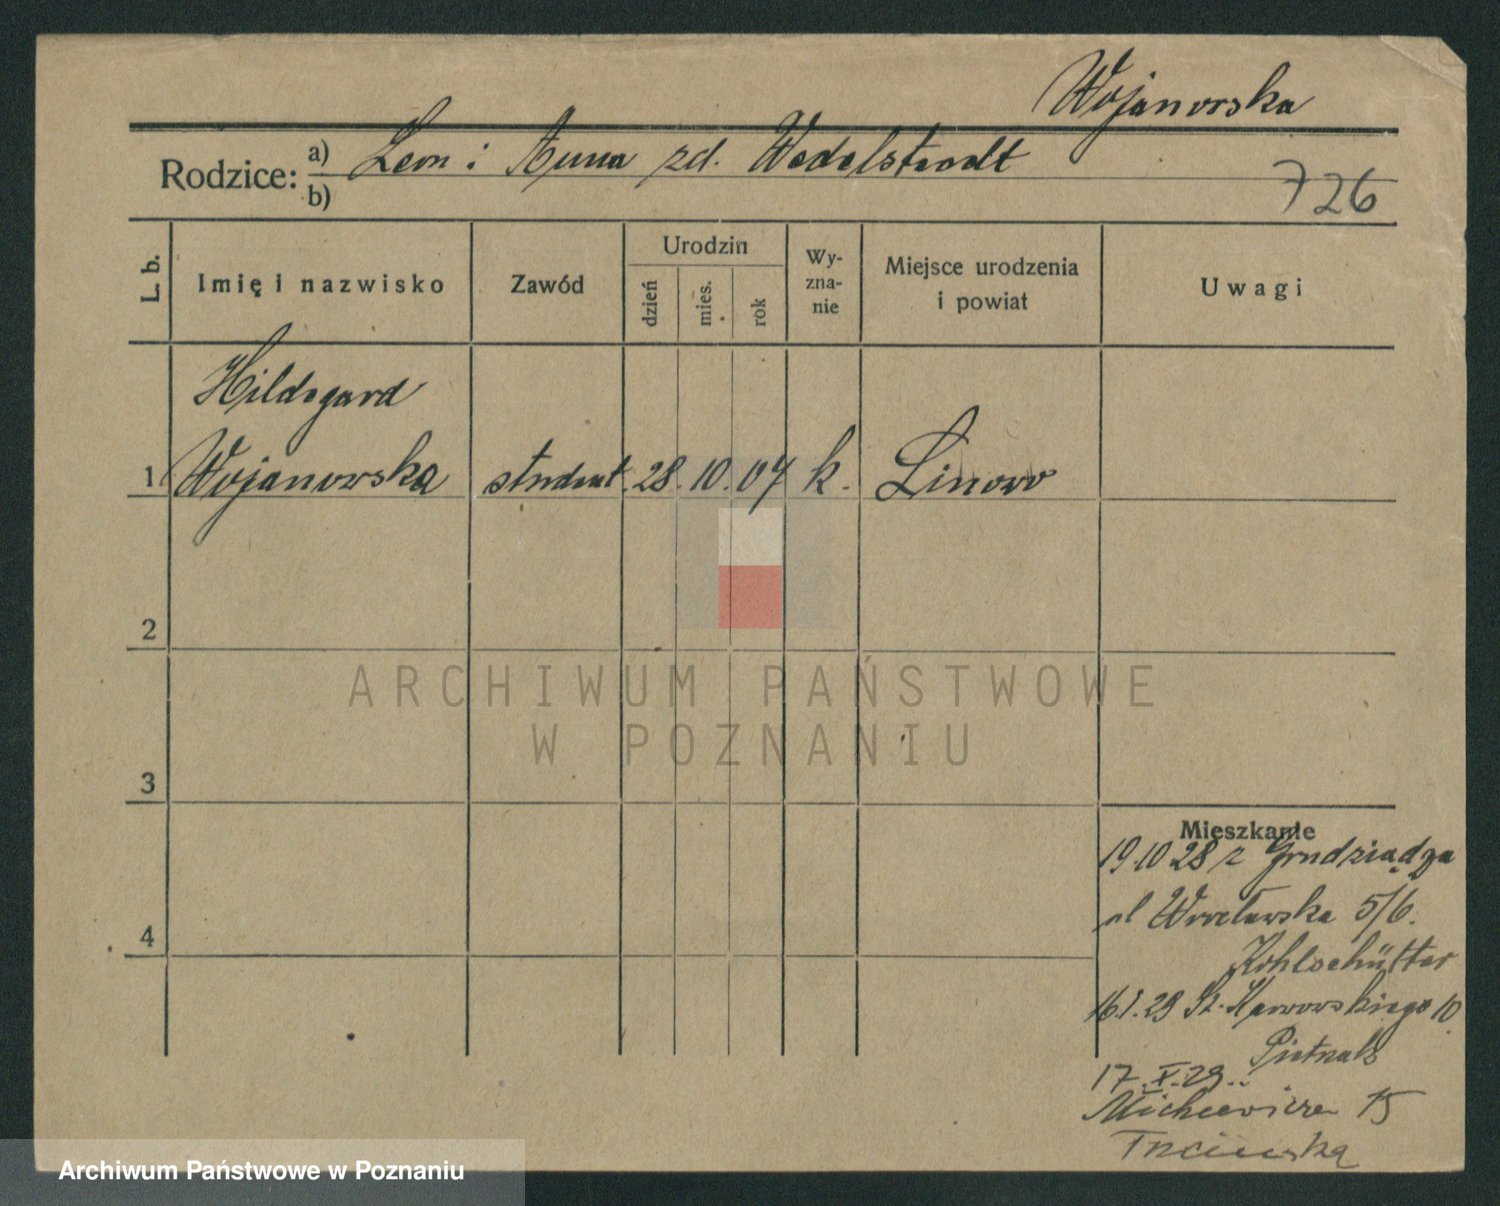 Wojanowska
Rodzice: a) Leon i Anna zd. Wedelstaedt
b)
726
L. b.
Imię i nazwisko
Zawód
Urodzin
dzień
mies.
rok
Wy-
zna-
nie
Miejsce urodzenia
i powiat
Uwagi
Hildegard
1 Wojanowska student 28. 10. 07 k. Linowo
2
ARCHIWUM PAŃSTWOWE
W POZNANIU
3
Mieszkanie
19.10 28 z Grudziądza
ul Wrocławska 5/6.
4
Kohlschütter
16.I.29 St. Karwowskiego 10
17.X.29.
Mickiewicza 15
Archiwum Państwowe w Poznaniu